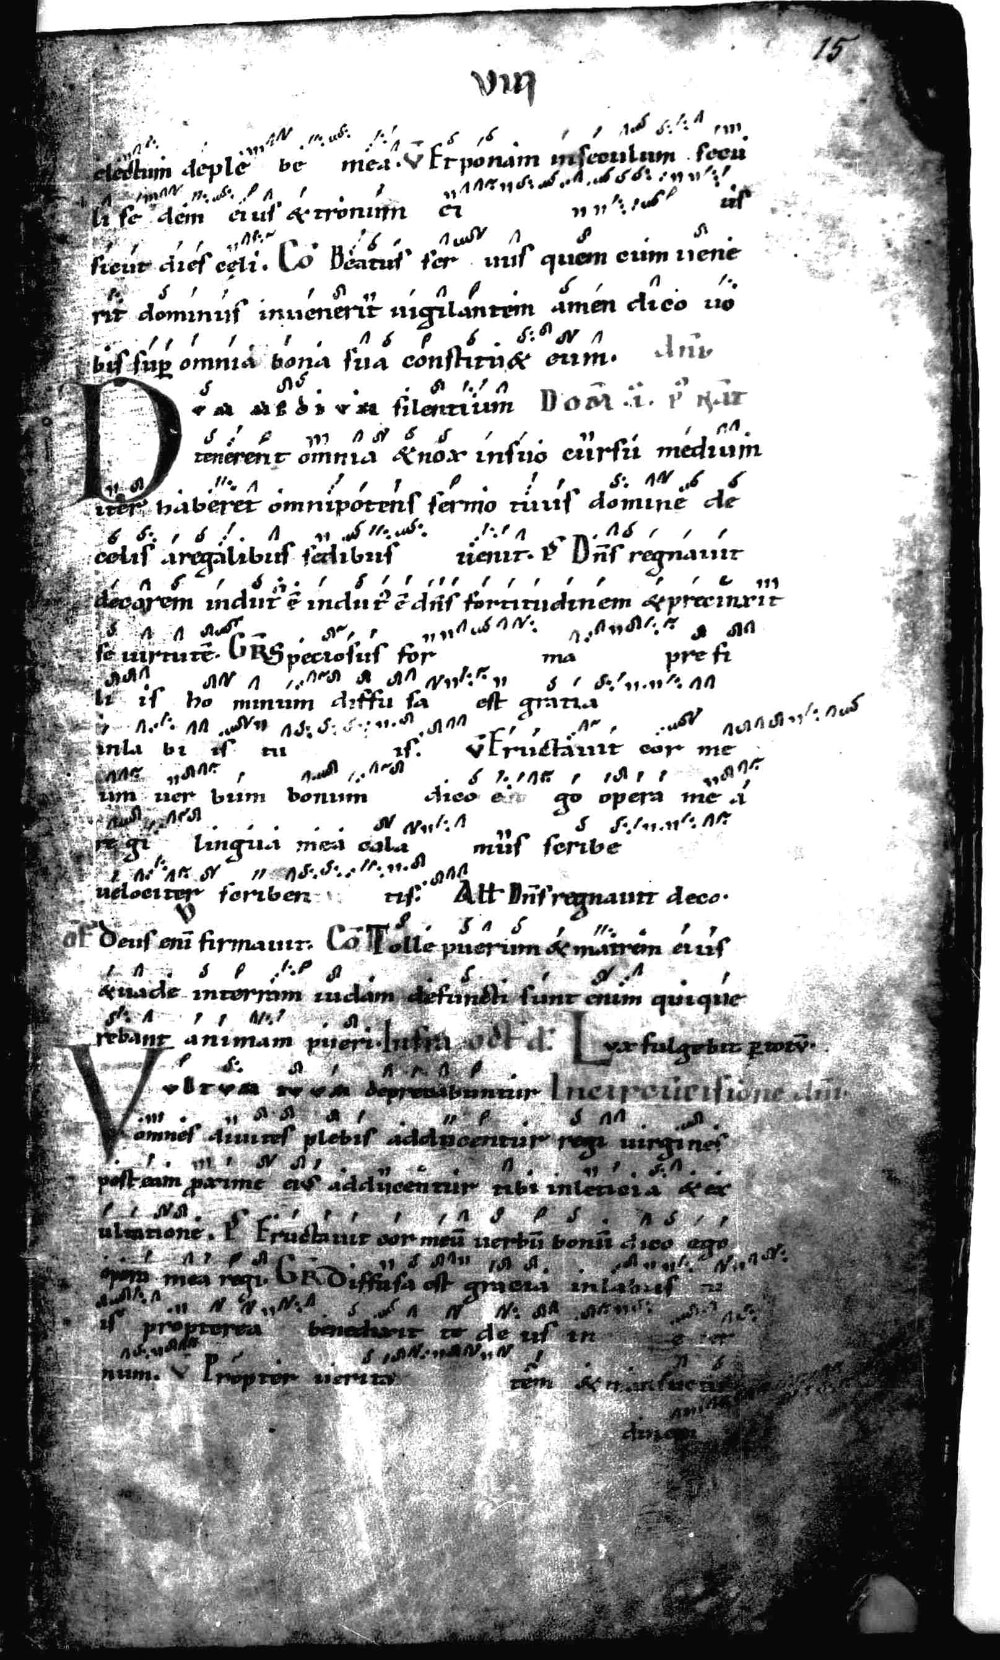 15
VIII
electum de ple be mea. V Et ponam in seculum secu
li se dem eius & tronum ei us
sicut dies celi. Cō Beatus ser uus quem cum uene
rit dominus inuenerit uigilantem amen dico uo
bis sup omnia bona sua constitu& eum. dn̄i
Dum medium silentium Dom̄ .i. p̄ nat̄
tenerent omnia & nox in suo cursu medium
iter haberet omnipotens sermo tuus domine de
celis a regalibus sedibus uenit. ps Dn̄s regnauit
decorem indut' ē indut' ē dn̄s fortitudinem & precinxit
se uirtutē. GR Speciosus for ma pre fi
li is ho minum diffu sa est gratia
in la bi is tu is. V Eructauit cor me
um uer bum bonum dico e go opera mea
re gi lingua mea cala mus scribe
uelociter scriben tis. All Dn̄s regnauit deco.
of Deus eni firmauit. Cō Tolle puerum & matrem eius
& uade in terram iudam defuncti sunt enim qui que
rebant animam pueri. Infra oct d. Lux fulgebit
Vultum tuum deprecabuntur In circucisione dn̄i.
omnes diuites plebis adducentur regi uirgines
post eam proxime eius adducentur tibi in leticia & ex
ultatione. ps Eructauit cor meū uerbū bonū dico ego
opera mea regi. GR Diffusa est gracia in labiis tu
is propterea benedixit te de us in e ter
num. V Propter uerita tem & mansuetu
dinem